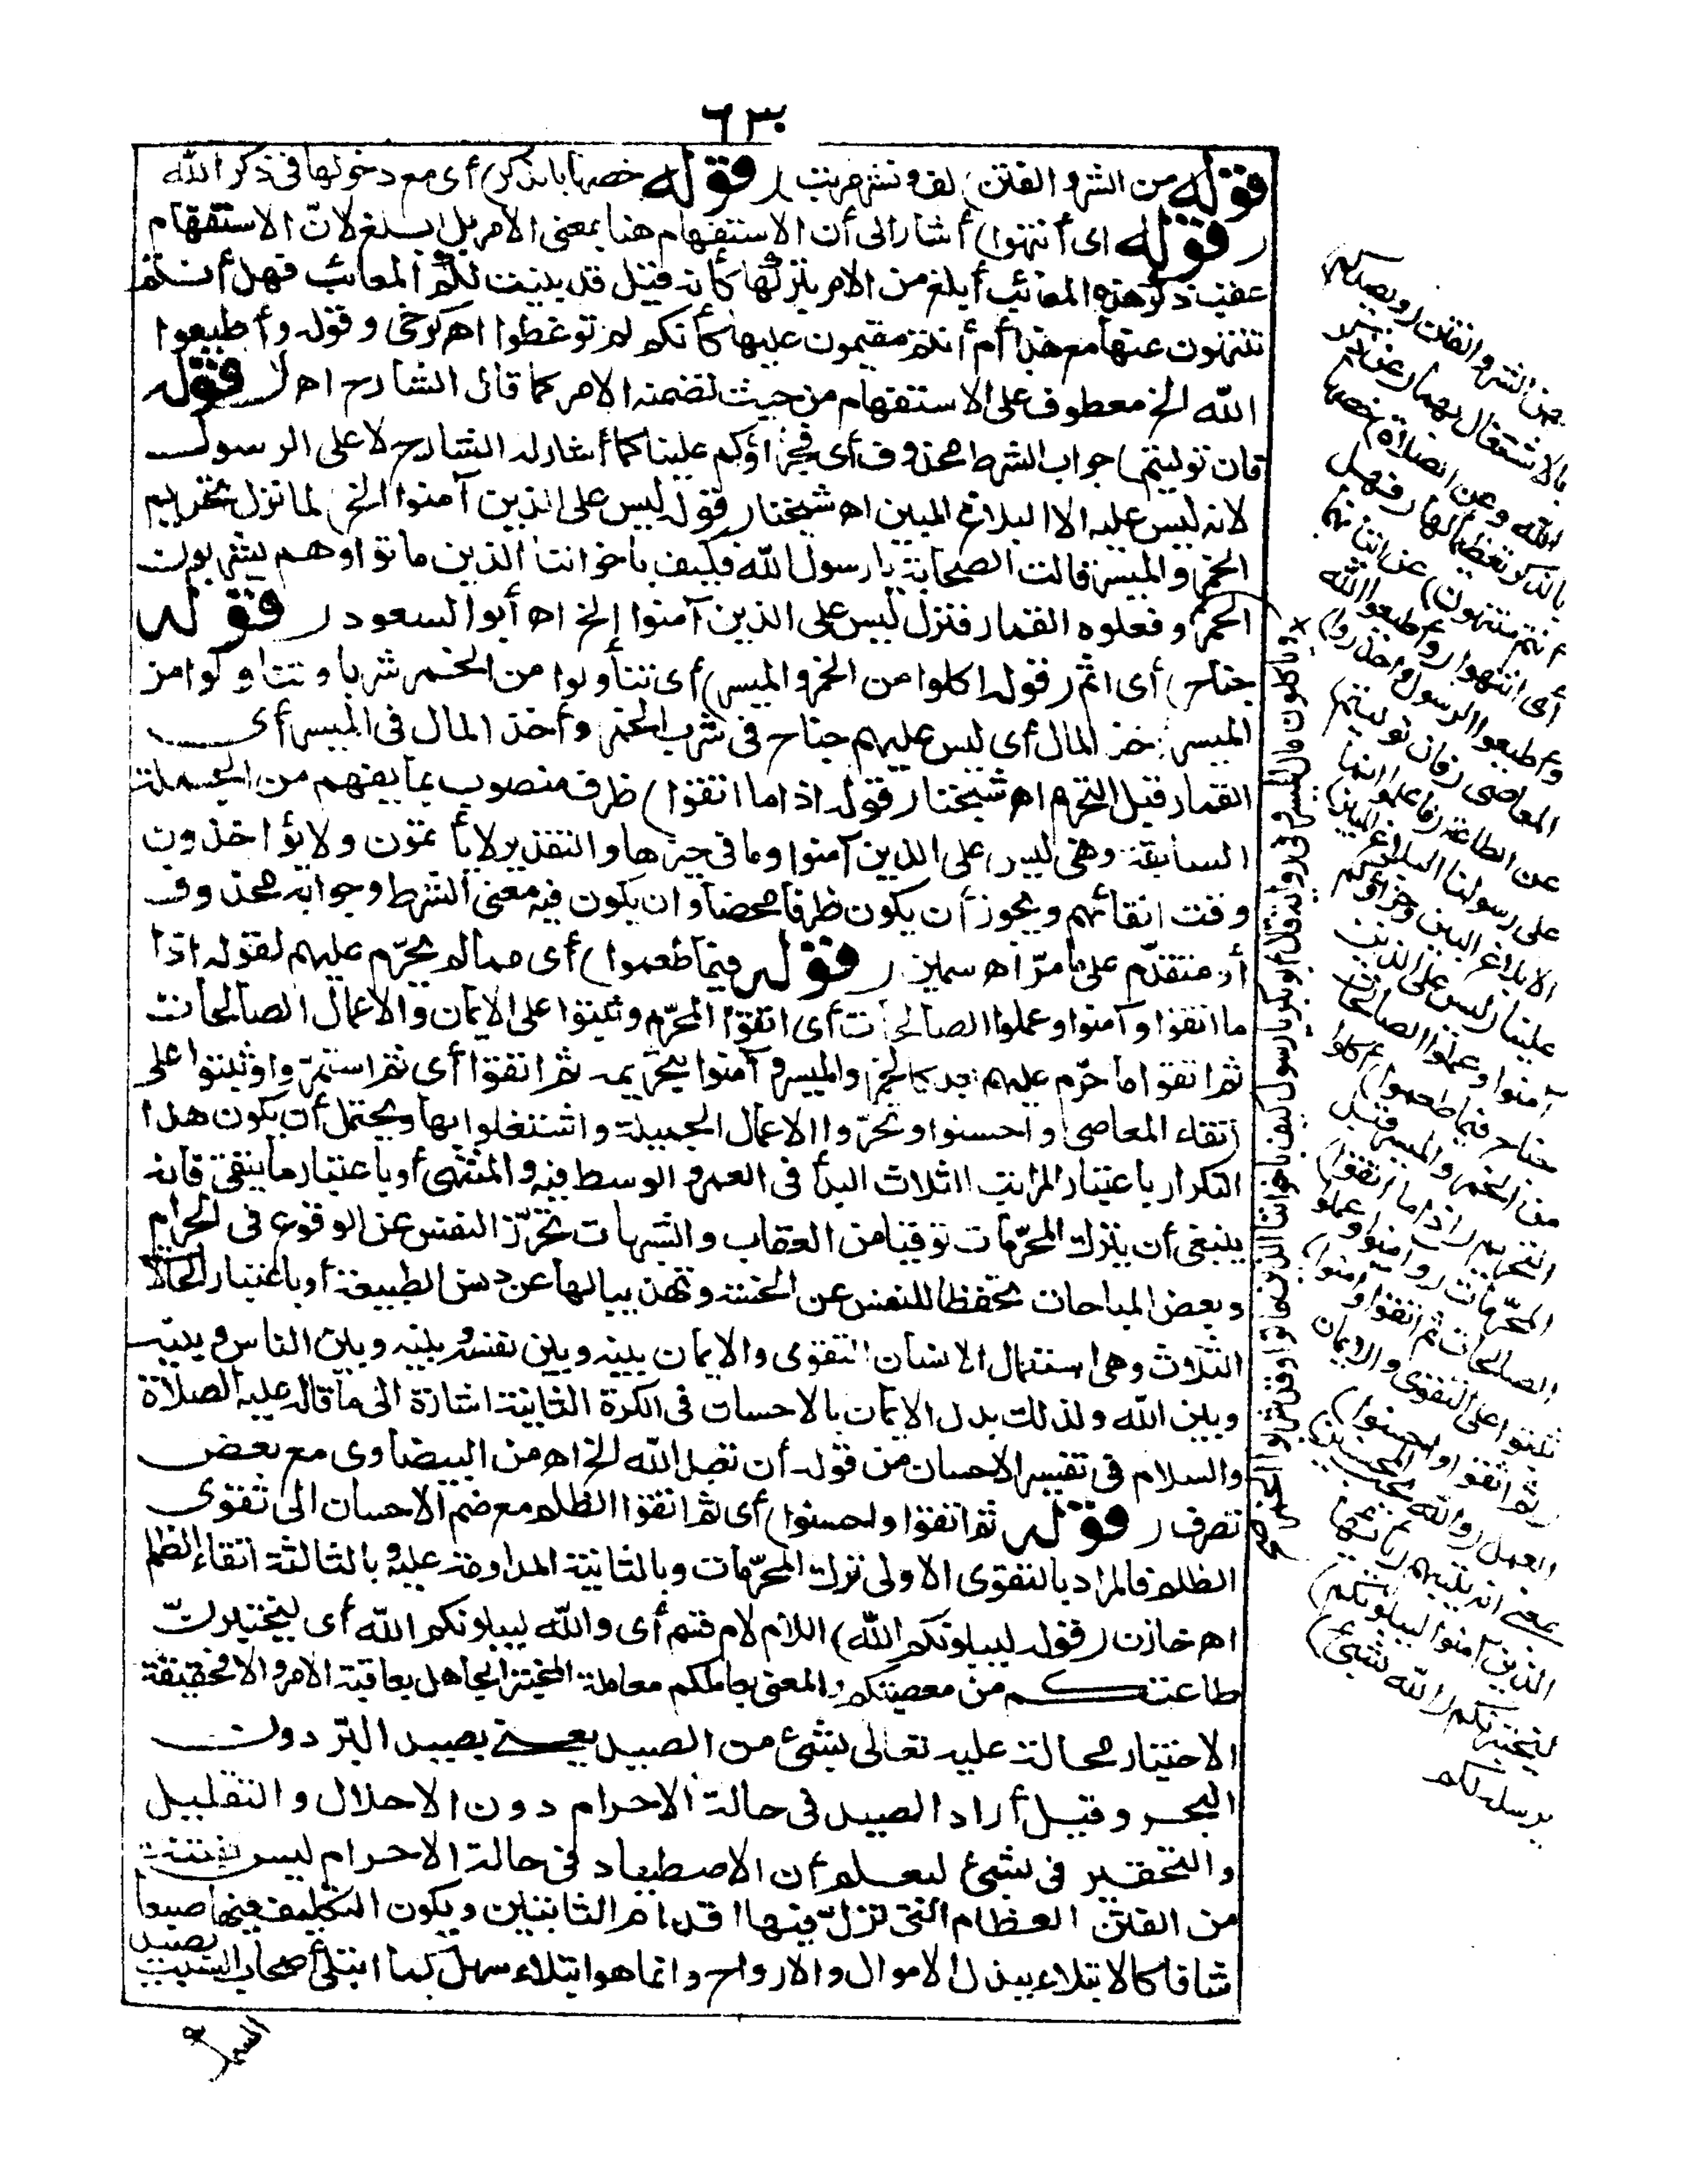 ٦٣٠
قوله من الشر والفتن) لف ونشر مرتب (قوله خصها بالذكر) أى مع دخولها فى ذكر الله
(قوله اى أنتهوا) أشار الى أن الاستفهام هنا بمعنى الامر بل أبلغ لانّ الاستفهام
عقب ذكر هذه المعائب أبلغ من الامر بتركها كأنه قيل قد بينت لكم المعائب فهل أنتم
تنتهون عنها مع هذا أم أنتم مقيمون عليها كأنكم لم توعظوا اهـ كرخى وقوله وأطيعوا
الله الخ معطوف على الاستفهام من حيث تضمنه الامر كما قال الشارح اهـ (قوله
فان توليتم) جواب الشرط محذوف أى فجزاؤكم علينا كما أشار له الشارح لا على الرسول
لانه ليس عليه الا البلاغ المبين اهـ شيخنا (قوله ليس على الذين آمنوا الخ) لما نزل تحريم
الخمر والميسر قالت الصحابة يا رسول الله فكيف باخواننا الذين ماتوا وهم يشربون
الخمر وفعلوه القمار فنزل ليس على الذين آمنوا إلخ اهـ أبو السعود (قوله
جناح) أى اثم (قوله اكلوا من الخمر والميسر) أى تناولوا من الخمر شربا وتناولوا من
الميسر أخذ المال أى ليس عليهم جناح فى شرب الخمر وأخذ المال فى الميسر أى
القمار قبل التحريم اهـ شيخنا (قوله اذا ما اتقوا) ظرف منصوب بما يفهم من الجملة
السابقة وهى ليس على الذين آمنوا وما فى حيزها والتقدير لا يأثمون ولا يؤاخذون
وقت اتقائهم ويجوز أن يكون ظرفا محضا وان يكون فيه معنى الشرط وجوابه محذوف
أو متقدّم على ما مرّ اهـ سمين (قوله فيما طعموا) أى مما لم يحرّم عليهم لقوله اذا
ما اتقوا وآمنوا وعملوا الصالحات أى اتقوا المحرّم وثبتوا على الايمان والاعمال الصالحات
ثم اتقوا ما حرّم عليهم بعد كالخمر والميسر وآمنوا بتحريمه ثم اتقوا أى ثم استمرّوا وثبتوا على
اتقاء المعاصى وأحسنوا وتحرّوا الاعمال الجميلة واشتغلوا بها ويحتمل أن يكون هذا
التكرار باعتبار المراتب الثلاث المبدأ فى العمر والوسط فيه والمنتهى أو باعتبار ما يتقى فانه
ينبغى أن يترك المحرّمات توقيا من العقاب والشبهات تحرّز النفس عن الوقوع فى الحرام
وبعض المباحات تحفظا للنفس عن الخسة وتهذيبا لها عن دنس الطبيعة أو باعتبار الحالات
الثلاث وهى استعمال الانسان التقوى والايمان بينه وبين نفسه وبينه وبين الناس وبينه
وبين الله ولذلك بدل الايمان بالاحسان فى الكرة الثانية اشارة الى ما قاله عليه الصلاة
والسلام فى تفسير الاحسان من قوله أن تعبد الله الخ اهـ من البيضاوى مع بعض
تصرف (قوله ثم اتقوا وأحسنوا) أى ثم اتقوا الظلم مع ضم الاحسان الى تقوى
الظلم فالمراد بالتقوى الاولى ترك المحرّمات وبالثانية المداومة عليه وبالثالثة اتقاء الظلم
اهـ خازن (قوله ليبلونكم الله) اللام لام قسم أى والله ليبلونكم الله أى ليختبرنّ
طاعتكم من معصيتكم والمعنى يعاملكم معاملة المختبر الجاهل بعاقبة الامر والا فحقيقة
الاختبار محالة عليه تعالى بشئ من الصيد يعنى بصيد البرّ دون
البحر وقيل أراد الصيد فى حالة الاحرام دون الاحلال والتقليل
والتحقير فى بشئ ليعلم أن الاصطياد فى حالة الاحرام ليس بفتنة
من الفتن العظام التى تزلّ فيها اقدام الثابتين ويكون التكليف فيها صعبا
شاقا كالابتلاء ببذل الاموال والارواح وانما هو ابتلاء سهل كما ابتلى أصحاب السبت بصيد
السمك
من الشر والفتن (ويصدكم)
بالاشتغال بهما (عن ذكر
الله وعن الصلاة) خصها
بالذكر تعظيما لها (فهل
أنتم منتهون) عن اتيانهما
أى انتهوا (وأطيعوا الله
وأطيعوا الرسول واحذروا)
المعاصى (فان توليتم)
عن الطاعة (فاعلموا انما
على رسولنا البلاغ المبين)
الابلاغ البين وجزاؤكم
علينا (ليس على الذين
آمنوا وعملوا الصالحات
جناح فيما طعموا) أكلوا
من الخمر والميسر قبل
التحريم (اذا ما اتقوا)
المحرّمات (وآمنوا وعملوا
الصالحات ثم اتقوا وآمنوا)
ثبتوا على التقوى والايمان
(ثم اتقوا وأحسنوا)
العمل (والله يحب المحسنين)
بمعنى انه يثيبهم (يا أيها
الذين آمنوا ليبلونكم)
ليختبرنكم (الله بشئ)
يرسله لكم
وياكلون مال الميسر وفى رواية قال أبو بكر يا رسول كيف باخواننا الذين ماتوا وقد شربوا الخمر